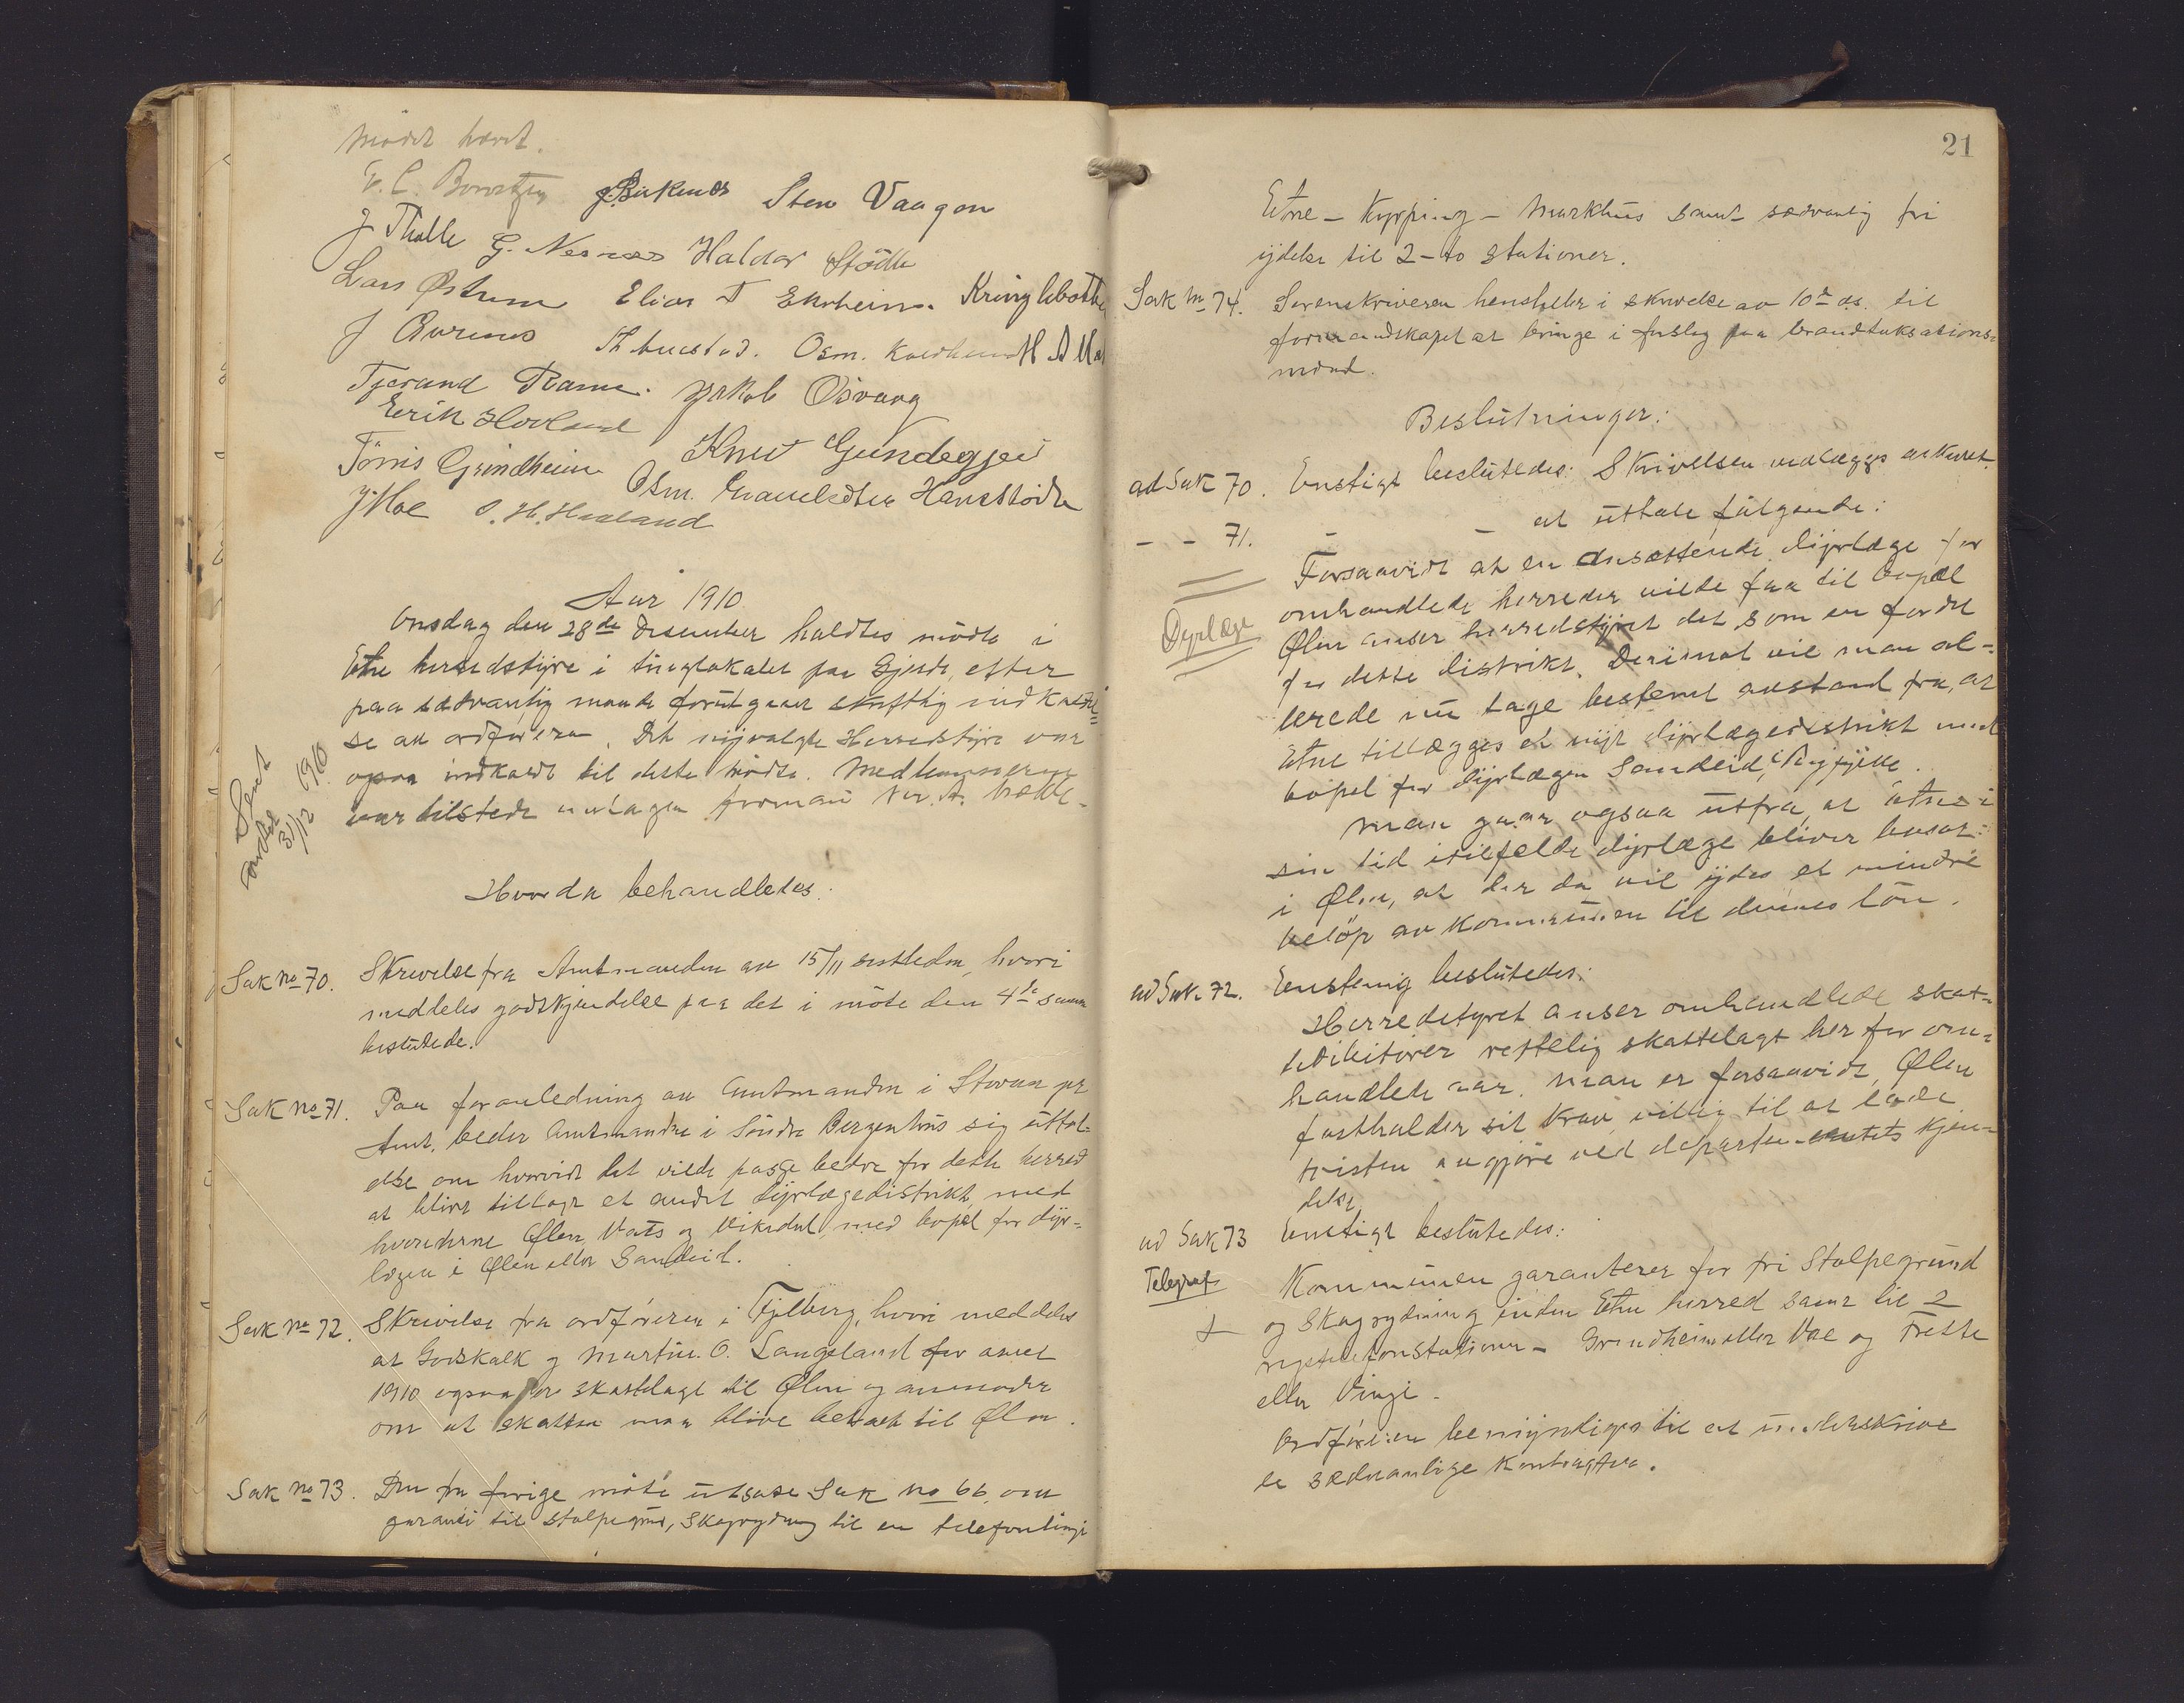 Mödet hævet.
J. Birkenes Sten Vaagen
J Tholle G. Nernæs Haldor Stödle
Lars Østrem Elias T Ekrheim. Kringlebotten
J Aurenes Osm. Kaldheim H A
Tjerand Ramn. Jakob Osvaag
Eerik Hovland
Tönnis Grindheim Knut Gundegjerd
Osm. Hans Stödle
J Moe S. H. Haaland
Aar 1910
Onsdag den 28de Desember holdtes möde i
Etne herredstyre i tinglokalet paa Gjerde, efter
paa sædvanlig maade forutgaaet skriftlig indkaldel=
se av ordføreren. Det nyvalgte Herredstyre var
ogsaa indkaldt til dette möde. Medlemmerne
var tilstede untagen forman
Sent
31/12 1910
Hvorda behandledes:
Sak No 70. Skrivelse fra Amtmanden av 15/11 sistleden, hvori
meddeles godkjendelse paa det i möte den 4de samme
beslutede.
Sak No 71. Paa foranledning av Amtmanden i Stavanger
Amt, beder Amtmanden i Söndre Bergenhus sig uttal-
else om hvorvidt det vilde passe bedre for dette herred
at blive tillagt et andet dyrlægedistrikt, med
herrederne Ølen, Vats og Vikedal, med bopæl for dyr=
lægen i Ølen eller Sandeid.
Sak No 72. Skrivelse fra ordføreren i Fjelberg, hvori meddeles
at Godskalk og Martin O. Langeland for aaret
1910 ogsaa er skattelagt til Ølen og anmoder
om at skatten maa blive betalt til Ølen.
Sak No 73. Den fra forige möte utsatte Sak No 66, om
garanti til stolpegrund, skogrydning til en telefonlinje
21
Etne - Kyrping - Markhus samt sædvanlig fri
ydelse til 2 - to stationer.
Sak No 74. Sorenskriveren henstiller i skrivelse av 10de ds. til
formandskapet at bringe i forslag paa brandtaksations-
mænd.
Beslutninger:
ad Sak 70. Enstigt beslutedes: Skrivelsen vedlægges arkivet.
- - 71. - - at uttale følgende:
Dyrlæge
Forsaavidt at en ansættende dyrlæge for
omhandlede herreder vilde faa til bopæl
Ølen anser herredstyret det som en fordel
for dette distrikt. Derimot vil man al=
lerede nu tage bestemt avstand fra, at
Etne tillægges et nyt dyrlægedistrikt med
bopel for dyrlægen Sandeid, i Ryfylke.
Man gaar ogsaa utfra, at Etne i
sin tid itilfelde dyrlæge bliver bosat
i Ølen, at der da vil ydes et mindre
beløp av kommunen til dennes lön.
ad Sak. 72. Eenstemig beslutedes:
Herredstyret anser omhandlede skat=
tedebitorer rettelig skattelagt her for om=
handlede aar. Man er forsaavidt Ølen
fastholder sit krav villig til at lade
tvisten avgjöre ved departementets kjen=
delse.
ad Sak 73 Enstigt beslutedes:
Telegraf
Kommunen garanterer for fri Stolpegrund
og Skogrydning inden Etne herred samt til 2
rigstelefonstationer - Grindheim eller Vae og Frette
eller Vinje.
Ordføreren bemyndiges til at underskrive
de sædvanlige kontragter.